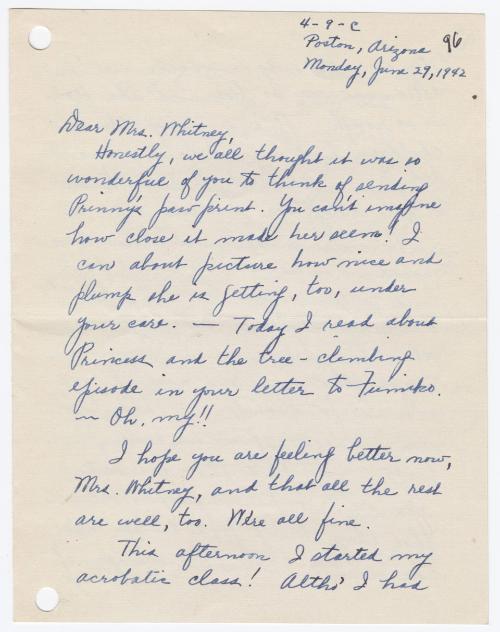 4-9-C
Poston, Arizona
96
Monday, June 29, 1942
Dear Mrs. Whitney,
Honestly, we all thought it was so
wonderful of you to think of sending
Prinny's paw print. You can't imagine
how close it made her seem! I
can about picture how nice and
plump she is getting, too, under
your care. — Today I read about
Princess and the tree-climbing
episode in your letter to Fumiko.
— Oh, my!!
I hope you are feeling better now,
Mrs. Whitney, and that all the rest
are well, too. We're all fine.
This afternoon I started my
acrobatic class! Altho' I had